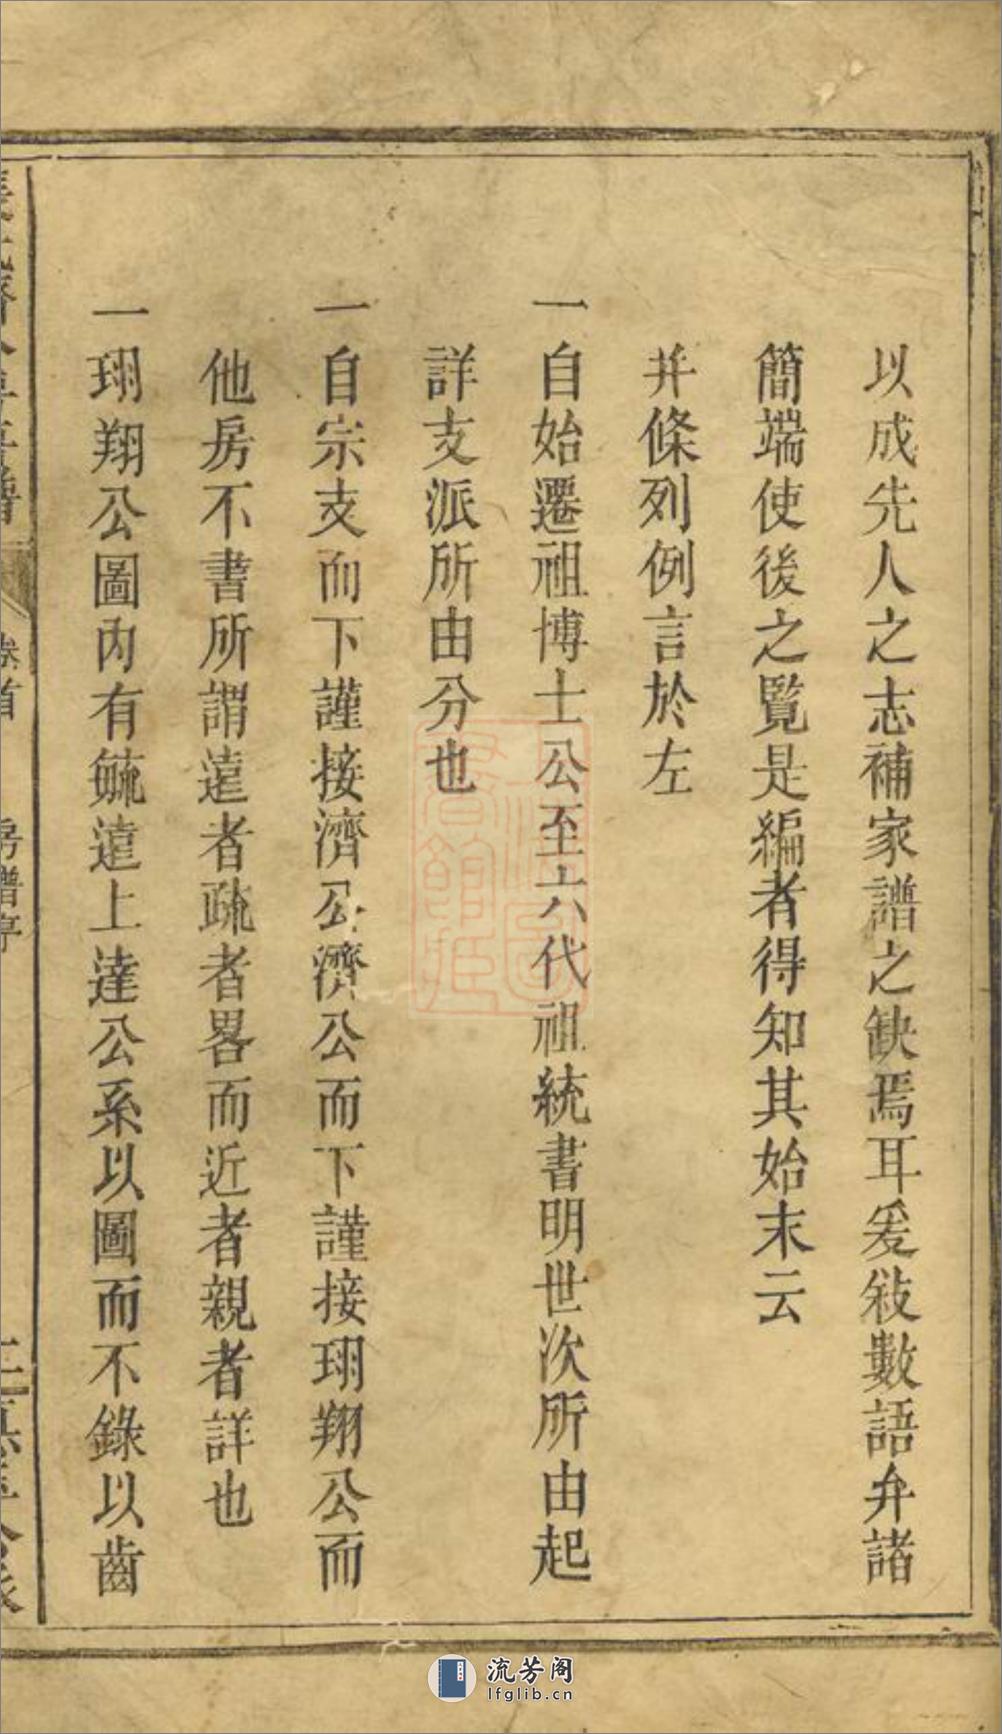 以成先人之志補家譜之缺焉耳爰敍數語弁諸
簡端使後之覧是編者得知其始末云
并條列例言於左
一自始遷祖博士公至六代祖統書明世次所由起
詳支派所由分也
一自宗支而下謹接濟公濟公而下謹接珝翔公而
他房不書所謂遠者疏者畧而近者親者詳也
一珝翔公圖內有毓遠上達公系以圖而不錄以齒
卷首
房譜序
流芳阁
lfglib.cn